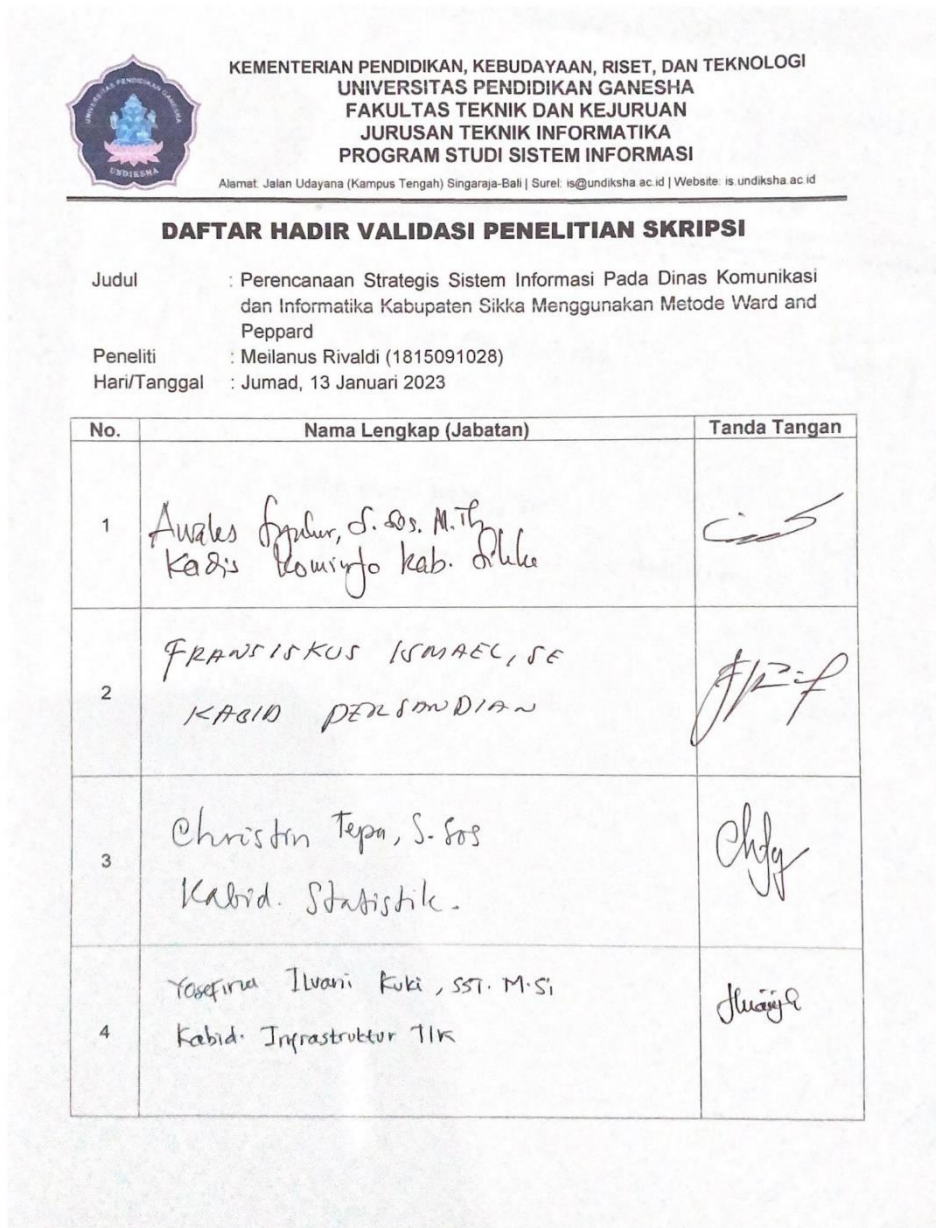 KEMENTERIAN PENDIDIKAN, KEBUDAYAAN, RISET, DAN TEKNOLOGI
UNIVERSITAS PENDIDIKAN GANESHA
FAKULTAS TEKNIK DAN KEJURUAN
JURUSAN TEKNIK INFORMATIKA
PROGRAM STUDI SISTEM INFORMASI
UNIVERSITAS PENDIDIKAN GANESHA
UNDIKSHA
Alamat: Jalan Udayana (Kampus Tengah) Singaraja-Bali | Surel: is@undiksha.ac.id | Website: is.undiksha.ac.id
DAFTAR HADIR VALIDASI PENELITIAN SKRIPSI
Judul : Perencanaan Strategis Sistem Informasi Pada Dinas Komunikasi
dan Informatika Kabupaten Sikka Menggunakan Metode Ward and
Peppard
Peneliti : Meilanus Rivaldi (1815091028)
Hari/Tanggal : Jumad, 13 Januari 2023
No. Nama Lengkap (Jabatan) Tanda Tangan
1 S. Sos. M.Th
Kadis Kominfo kab. Sikka
2 FRANSISKUS ISMAEL, SE
KABID PERSANDIAN
3 Christin Tepa, S. Sos
Kabid. Statistik.
4 Yosefina Ilvani Kuki, SST. M.Si
Kabid. Infrastruktur TIK